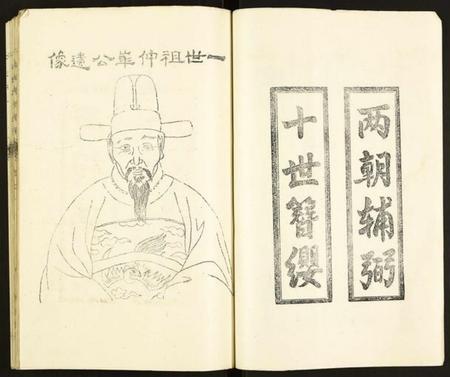 两朝辅弼
十世簪缨
一世祖仲华公遗像